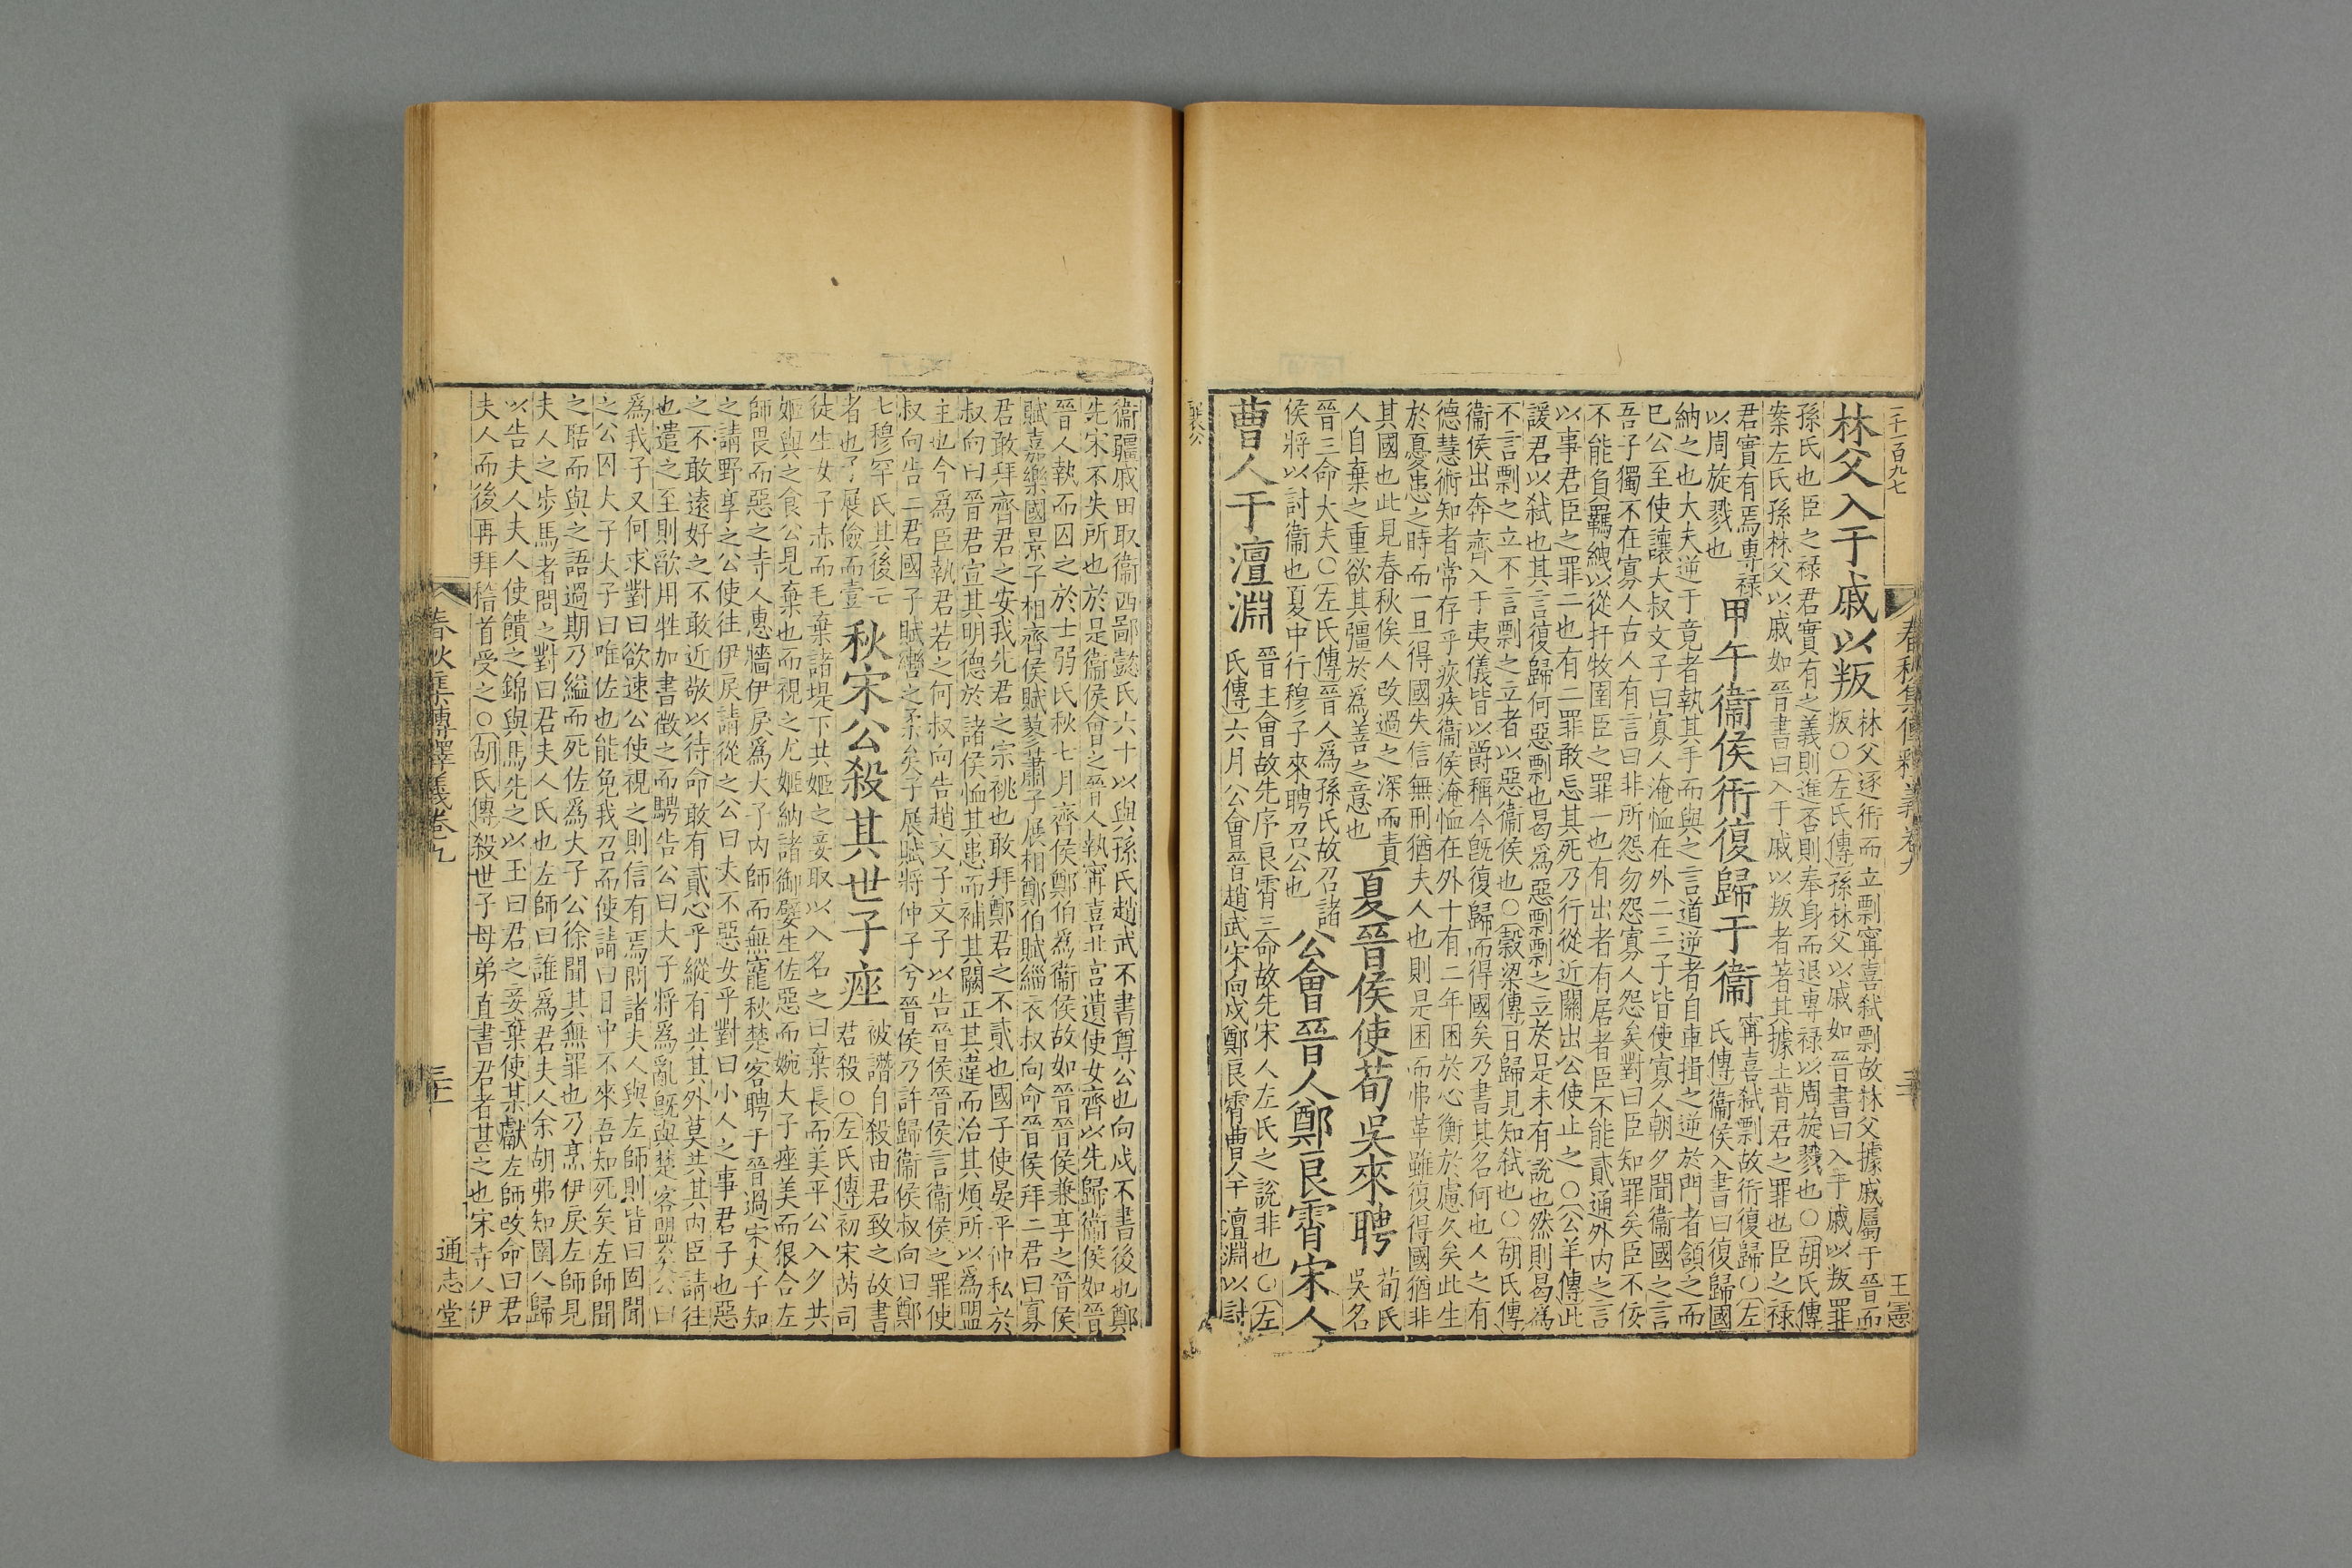 二千一百九七
春秋集傳釋義卷九
王憲
林父入于戚以叛
林父逐衎而立剽甯喜弑剽故林父據戚屬于晉而
叛○左氏傳孫林父以戚如晉書曰入于戚以叛罪
孫氏也臣之祿君實有之義則進否則奉身而退專祿以周旋戮也○胡氏傳
案左氏孫林父以戚如晉書曰入于戚以叛者著其據土背君之罪也臣之祿
君實有焉專祿
以周旋戮也
甲午衞侯衎復歸于衞
甯喜弑剽故衎復歸○左
氏傳衞侯入書曰復歸國
納之也大夫逆于竟者執其手而與之言道逆者自車揖之逆於門者頷之而
已公至使讓大叔文子曰寡人淹恤在外二三子皆使寡人朝夕聞衞國之言
吾子獨不在寡人古人有言曰非所怨勿怨寡人怨矣對曰臣知罪矣臣不佞
不能負羈絏以從扞牧圉臣之罪一也有出者有居者臣不能貳通外內之言
以事君臣之罪二也有二罪敢忘其死乃行從近關出公使止之○公羊傳此
諼君以弑也其言復歸何惡剽也曷爲惡剽剽之立於是未有說也然則曷爲
不言剽之立不言剽之立者以惡衞侯也○穀梁傳日歸見知弑也○胡氏傳
衞侯出奔齊入于夷儀皆以爵稱今旣復歸而得國矣乃書其名何也人之有
德慧術知者常存乎疢疾衞侯淹恤在外十有二年困於心衡於慮久矣此生
於憂患之時而一旦得國失信無刑猶夫人也則是困而弗革雖復得國猶非
其國也此見春秋俟人改過之深而責
人自棄之重欲其彊於爲善之意也
夏晉侯使荀吳來聘
荀氏
吳名
晉三命大夫○左氏傳晉人爲孫氏故召諸
侯將以討衞也夏中行穆子來聘召公也
公會晉人鄭良霄宋人
曹人于澶淵
晉主會故先序良霄三命故先宋人左氏之說非也○左
氏傳六月公會晉趙武宋向戌鄭良霄曹人于澶淵以討
襄公
衞疆戚田取衞西鄙懿氏六十以與孫氏趙武不書尊公也向戌不書後也鄭
先宋不失所也於是衞侯會之晉人執甯喜北宮遺使女齊以先歸衞侯如晉
晉人執而囚之於士弱氏秋七月齊侯鄭伯爲衞侯故如晉晉侯兼享之晉侯
賦嘉樂國景子相齊侯賦蓼蕭子展相鄭伯賦緇衣叔向命晉侯拜二君曰寡
君敢拜齊君之安我先君之宗祧也敢拜鄭君之不貳也國子使晏平仲私於
叔向曰晉君宣其明德於諸侯恤其患而補其闕正其違而治其煩所以爲盟
主也今爲臣執君若之何叔向告趙文子文子以告晉侯晉侯言衞侯之罪使
叔向告二君國子賦轡之柔矣子展賦將仲子兮晉侯乃許歸衞侯叔向曰鄭
七穆罕氏其後亡
者也子展儉而壹
秋宋公殺其世子痤
被譖自殺由君致之故書
君殺○左氏傳初宋芮司
徒生女子赤而毛棄諸堤下共姬之妾取以入名之曰棄長而美平公入夕共
姬與之食公見棄也而視之尤姬納諸御嬖生佐惡而婉大子痤美而狠合左
師畏而惡之寺人惠牆伊戾爲大子內師而無寵秋楚客聘于晉過宋大子知
之請野享之公使往伊戾請從之公曰夫不惡女乎對曰小人之事君子也惡
之不敢遠好之不敢近敬以待命敢有貳心乎縱有共其外莫共其內臣請往
也遣之至則歃用牲加書徵之而騁告公曰大子將爲亂旣與楚客盟矣公曰
爲我子又何求對曰欲速公使視之則信有焉問諸夫人與左師則皆曰固聞
之公囚大子大子曰唯佐也能免我召而使請曰日中不來吾知死矣左師聞
之聒而與之語過期乃縊而死佐爲大子公徐聞其無罪也乃烹伊戾左師見
夫人之步馬者問之對曰君夫人氏也左師曰誰爲君夫人余胡弗知圉人歸
以告夫人夫人使饋之錦與馬先之以玉曰君之妾棄使某獻左師改命曰君
夫人而後再拜稽首受之○胡氏傳殺世子母弟直書君者甚之也宋寺人伊
春秋集傳釋義卷九
通志堂